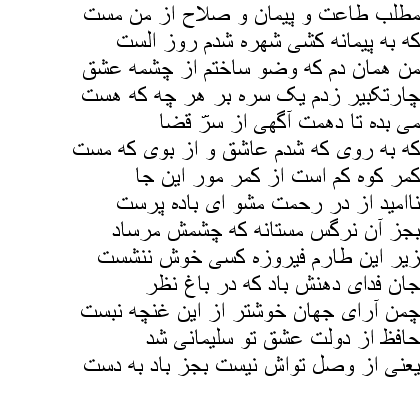 مطلب طاعت و پیمان و صلاح از من مست
که به پیمانه کشی شهره شدم روز الست
من همان دم که وضو ساختم از چشمه عشق
چارتکبیر زدم یک سره بر هر چه که هست
می بده تا دهمت آگهی از سرّ قضا
که به روی که شدم عاشق و از بوی که مست
کمر کوه کم است از کمر مور این جا
ناامید از در رحمت مشو ای باده پرست
بجز آن نرگس مستانه که چشمش مرساد
زیر این طارم فیروزه کسی خوش ننشست
جان فدای دهنش باد که در باغ نظر
چمن آرای جهان خوشتر از این غنچه نبست
حافظ از دولت عشق تو سلیمانی شد
یعنی از وصل تواش نیست بجز باد به دست